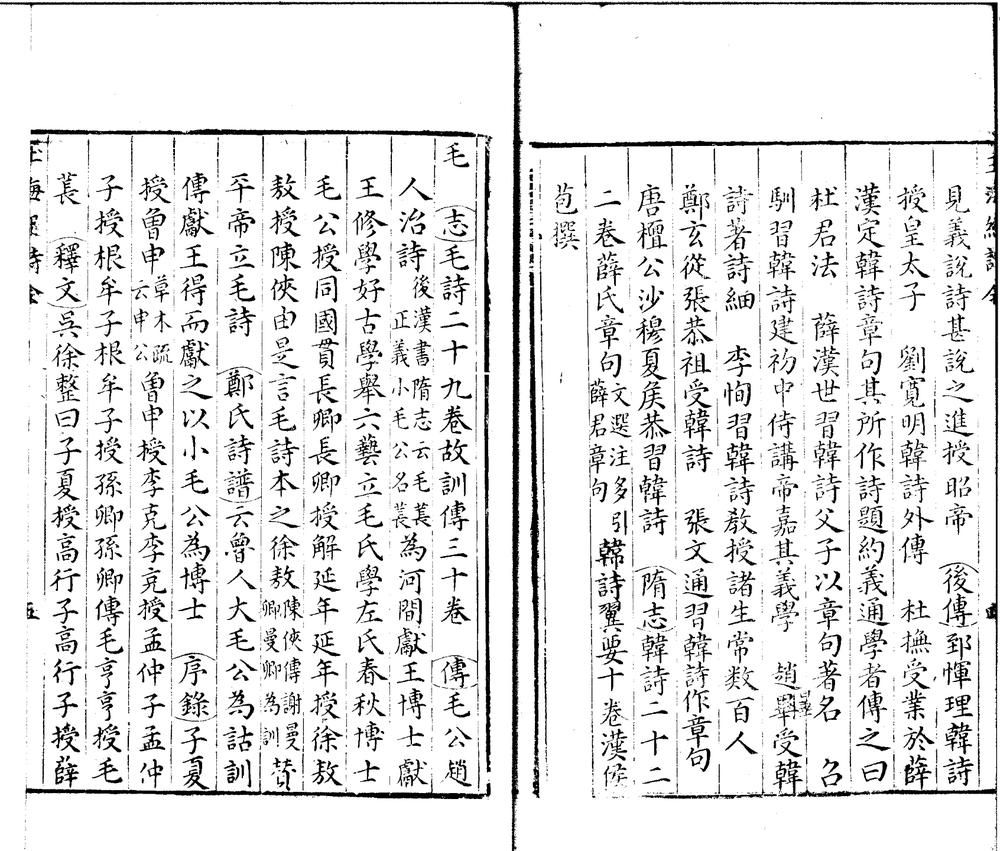 見義說詩甚說之進授昭帝　後傳郅惲理韓詩
授皇太子　劉寬明韓詩外傳　杜撫受業於薛
漢定韓詩章句其所作詩題約義通學者傳之曰
杜君法　薛漢世習韓詩父子以章句著名　召
馴習韓詩建初中侍講帝嘉其義學　趙曅受韓
詩著詩細　李恂習韓詩教授諸生常數百人
鄭玄從張恭祖受韓詩　張文通習韓詩作章句
唐檀公沙穆夏侯恭習韓詩　隋志韓詩二十二
二卷薛氏章句文選注多引薛君章句韓詩翼要十卷漢侯
苞撰
毛　志毛詩二十九卷故訓傳三十卷　傳毛公趙
人治詩後漢書隋志云毛萇正義小毛公名萇為河間獻王博士獻
王修學好古學舉六藝立毛氏學左氏春秋博士
毛公授同國貫長卿長卿授解延年延年授徐敖
敖授陳俠由是言毛詩本之徐敖陳俠傳謝曼卿曼卿為訓　贊
平帝立毛詩　鄭氏詩譜云魯人大毛公為詁訓
傳獻王得而獻之以小毛公為博士　序錄子夏
授曾申草木疏云申公曾申授李克李克授孟仲子孟仲
子授根牟子根牟子授孫卿孫卿傳毛亨亨授毛
萇　釋文吳徐整曰子夏授高行子高行子授薛